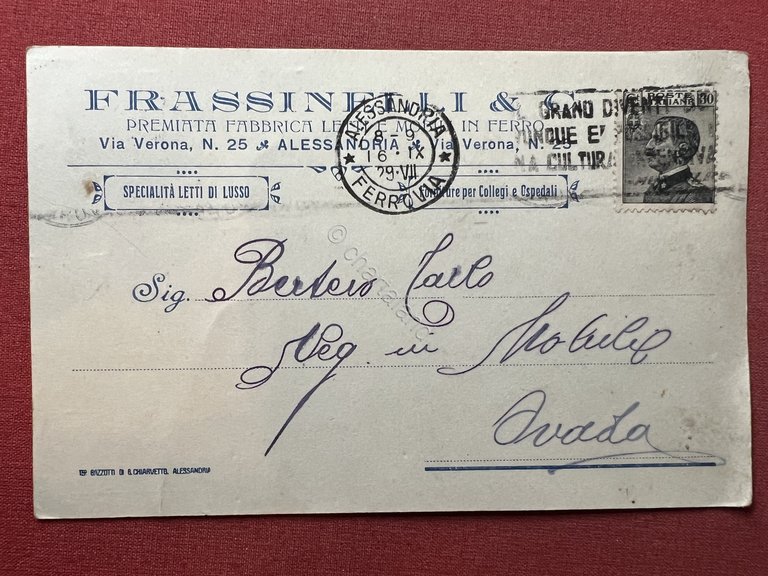 FRASSINELLI & C
PREMIATA FABBRICA LETTI E MOBILI IN FERRO
Via Verona, N. 25 ALESSANDRIA Via Verona, N. 25
SPECIALITÀ LETTI DI LUSSO
Forniture per Collegi e Ospedali
ALESSANDRIA
8-9
16·IX
29·VII
FERROVIA
GRANDO DIVENT
NA CULTURA
POSTE
ITALIANE 30
Sig. Bertero Carlo
Neg. in Mobili
Ovada
TIP. BAZZOTTI DI B. CHIARVETTO, ALESSANDRIA